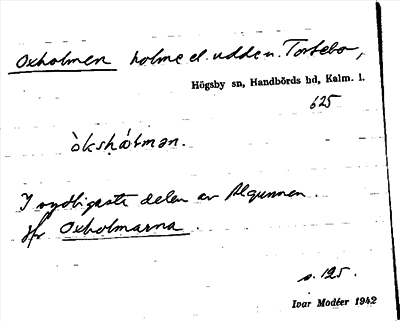 Oxholmen holme el. udde u. Torsebo,
Högsby sn, Handbörds hd, Kalm. l.
625
òkshɔ́lmən.
I sydligaste delen av Algunnen.
Jfr Oxholmarna.
s. 125.
Ivar Modéer 1942